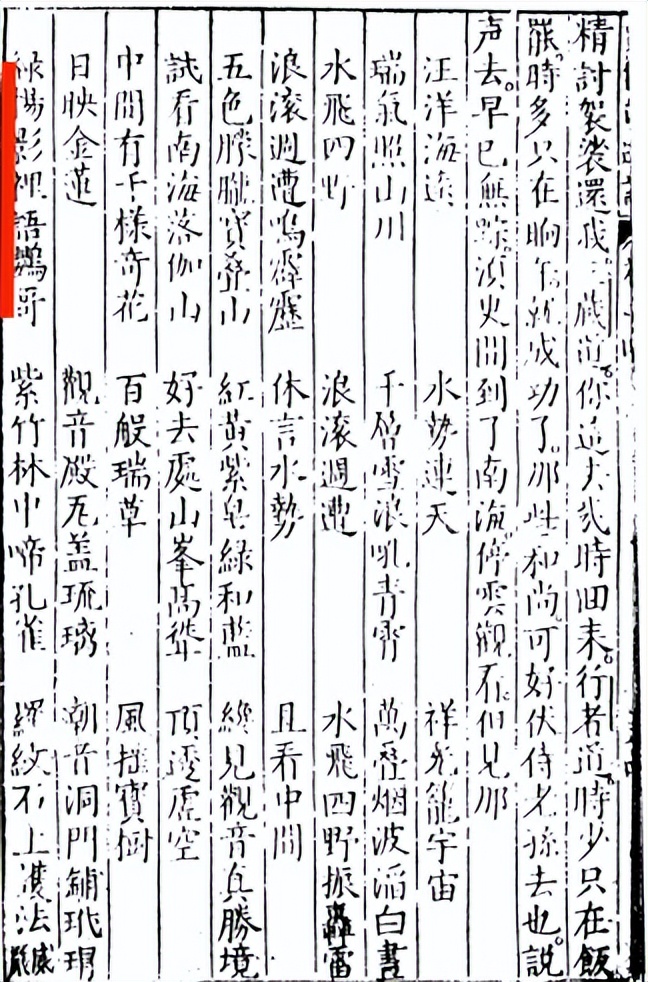 精討袈裟還我三藏道你這去幾時回来行者道時少只在飯
罷時多只在晌午就成功了那些和尚可好伏侍老孫去也說
声去早已無踪湏臾間到了南海停雲觀看但見那
汪洋海遠　水勢連天　祥光籠宇宙
瑞氣照山川　千層雪浪吼青霄　萬疊烟波滔白晝
水飛四野　浪滾週遭　水飛四野振轟雷
浪滾週遭鳴霹靂　休言水勢　且看中間
五色朦朧寶疊山　紅黄紫皂綠和藍　纔見觀音真勝境
試看南海落伽山　好去處山峯高聳　頂透虛空
中間有千樣奇花　百般瑞草　風摇寶樹
日映金蓮　觀音殿瓦盖琉璃　潮音洞門鋪玳瑁
綠楊影裡語鸚哥　紫竹林中啼孔雀　羅紋石上護法威嚴